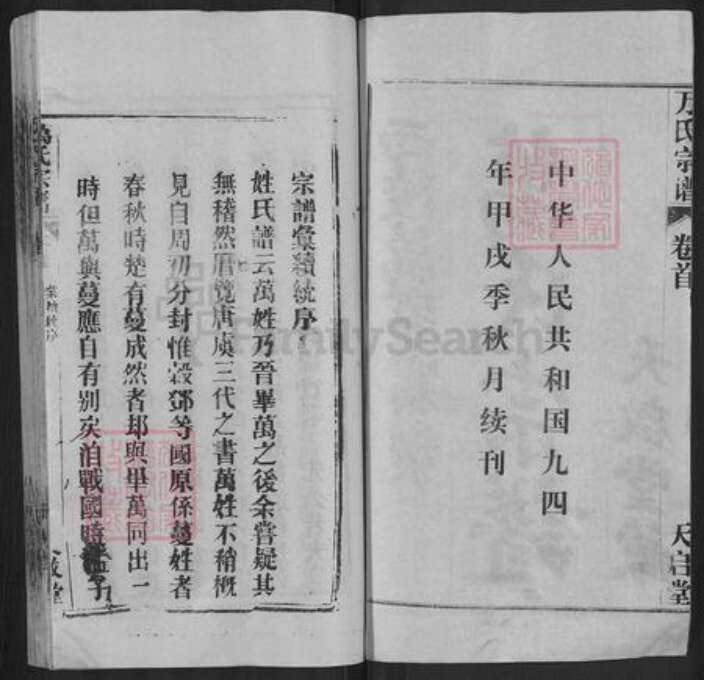 万氏宗谱
卷首
中华人民共和国九四
年甲戌季秋月续刊
宗譜彙續統序
姓氏譜云萬姓乃晉畢萬之後余嘗疑其
無稽然厯覽唐虞三代之書萬姓不稍概
見自周初分封惟榖鄧等國原係蔓姓者
春秋時楚有蔓成然者却與畢萬同出一
時但萬與蔓應自有别矣洎戰國時孟子
萬氏宗譜
FamilySearch